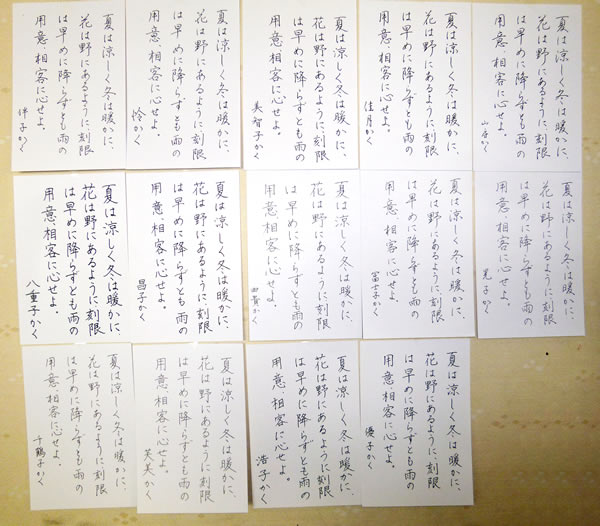 夏は涼しく冬は暖かに、
花は野にあるように刻限
は早めに降らずとも雨の
用意、相客に心せよ。
かく
夏は涼しく冬は暖かに、
花は野にあるように刻限
は早めに降らずとも雨の
用意、相客に心せよ。
佳月かく
夏は涼しく冬は暖かに、
花は野にあるように刻限
は早めに降らずとも雨の
用意、相客に心せよ。
美智子かく
夏は涼しく冬は暖かに、
花は野にあるように刻限
は早めに降らずとも雨の
用意、相客に心せよ。
怜かく
夏は涼しく冬は暖かに、
花は野にあるように刻限
は早めに降らずとも雨の
用意、相客に心せよ。
かく
夏は涼しく冬は暖かに、
花は野にあるように刻限
は早めに降らずとも雨の
用意、相客に心せよ。
光子かく
夏は涼しく冬は暖かに、
花は野にあるように刻限
は早めに降らずとも雨の
用意、相客に心せよ。
冨士子かく
夏は涼しく冬は暖かに、
花は野にあるように刻限
は早めに降らずとも雨の
用意、相客に心せよ。
由貴かく
夏は涼しく冬は暖かに、
花は野にあるように刻限
は早めに降らずとも雨の
用意、相客に心せよ。
昌子かく
夏は涼しく冬は暖かに、
花は野にあるように刻限
は早めに降らずとも雨の
用意、相客に心せよ。
八重子かく
夏は涼しく冬は暖かに、
花は野にあるように刻限
は早めに降らずとも雨の
用意、相客に心せよ。
優子かく
夏は涼しく冬は暖かに、
花は野にあるように刻限
は早めに降らずとも雨の
用意、相客に心せよ。
浩子かく
夏は涼しく冬は暖かに、
花は野にあるように刻限
は早めに降らずとも雨の
用意、相客に心せよ。
芙美かく
夏は涼しく冬は暖かに、
花は野にあるように刻限
は早めに降らずとも雨の
用意、相客に心せよ。
千鶴子かく